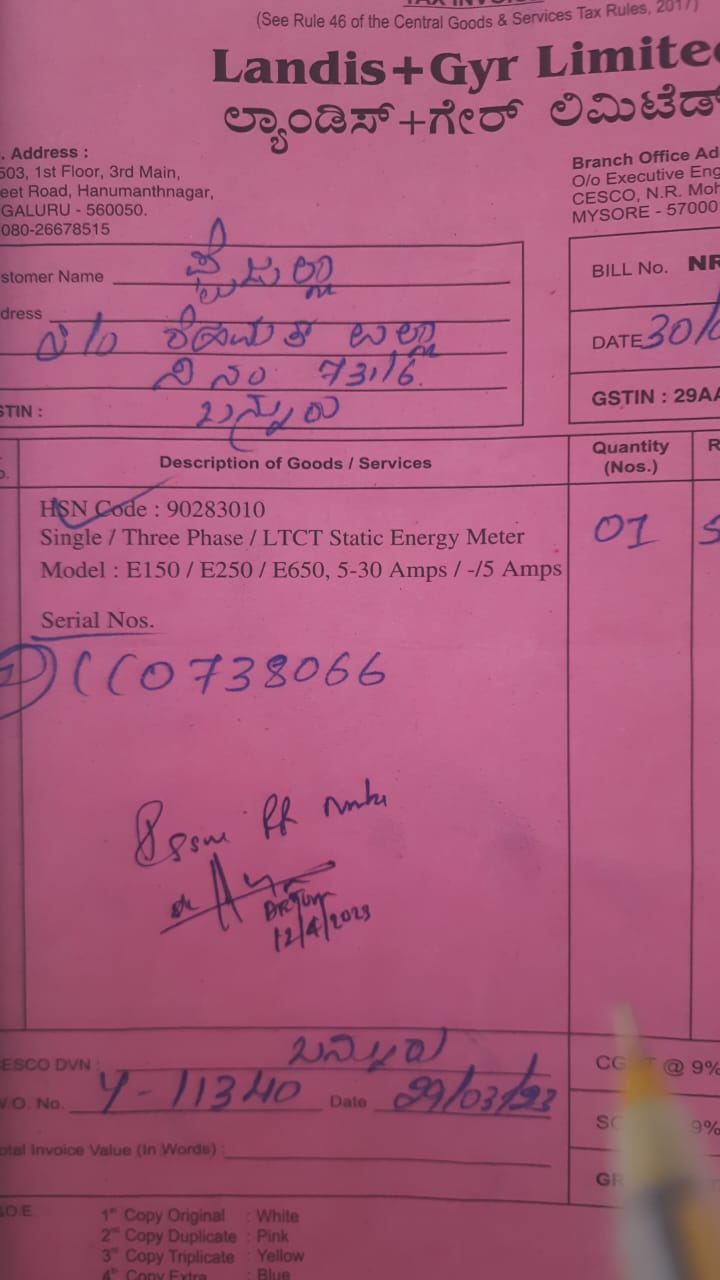 (See Rule 46 of the Central Goods & Services Tax Rules, 2017)
Landis+Gyr Limite
ಲ್ಯಾಂಡಿಸ್+ಗೇರ್ ಲಿಮಿಟೆಡ್
. Address :
503, 1st Floor, 3rd Main,
eet Road, Hanumanthnagar,
GALURU - 560050.
080-26678515
Branch Office Ad
O/o Executive Eng
CESCO, N.R. Moh
MYSORE - 57000
stomer Name
dress
ನಿ ನಂ 731/6.
STIN :
ಬನ್ನೂರು
BILL No. NR
DATE 30/
GSTIN : 29AA
Description of Goods / Services
Quantity
(Nos.)
R
HSN Code : 90283010
Single / Three Phase / LTCT Static Energy Meter
Model : E150 / E250 / E650, 5-30 Amps / -/5 Amps
01
Serial Nos.
1) CC0738066
12/4/2023
ESCO DVN : ಬನ್ನೂರು
V.O. No. Y-11340 Date 29/03/23
otal Invoice Value (In Words) :
@ 9%
9%
GR
.O.E.
1st Copy Original : White
2nd Copy Duplicate : Pink
3rd Copy Triplicate : Yellow
4th Copy Extra : Blue